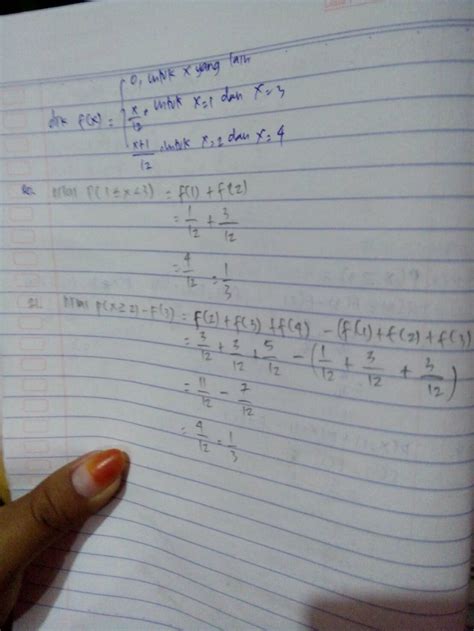 0, untuk x yang lain
dik f(x) = { x/12, untuk x=1 dan x=3
x+1/12, untuk x=2 dan x=4
P(1≤x<3) = f(1) + f(2)
= 1/12 + 3/12
= 4/12 = 1/3
21. P(x≥2) - F(3) = f(2) + f(3) + f(4) - (f(1) + f(2) + f(3)
= 3/12 + 3/12 + 5/12 - (1/12 + 3/12 + 3/12)
= 11/12 - 7/12
= 4/12 = 1/3